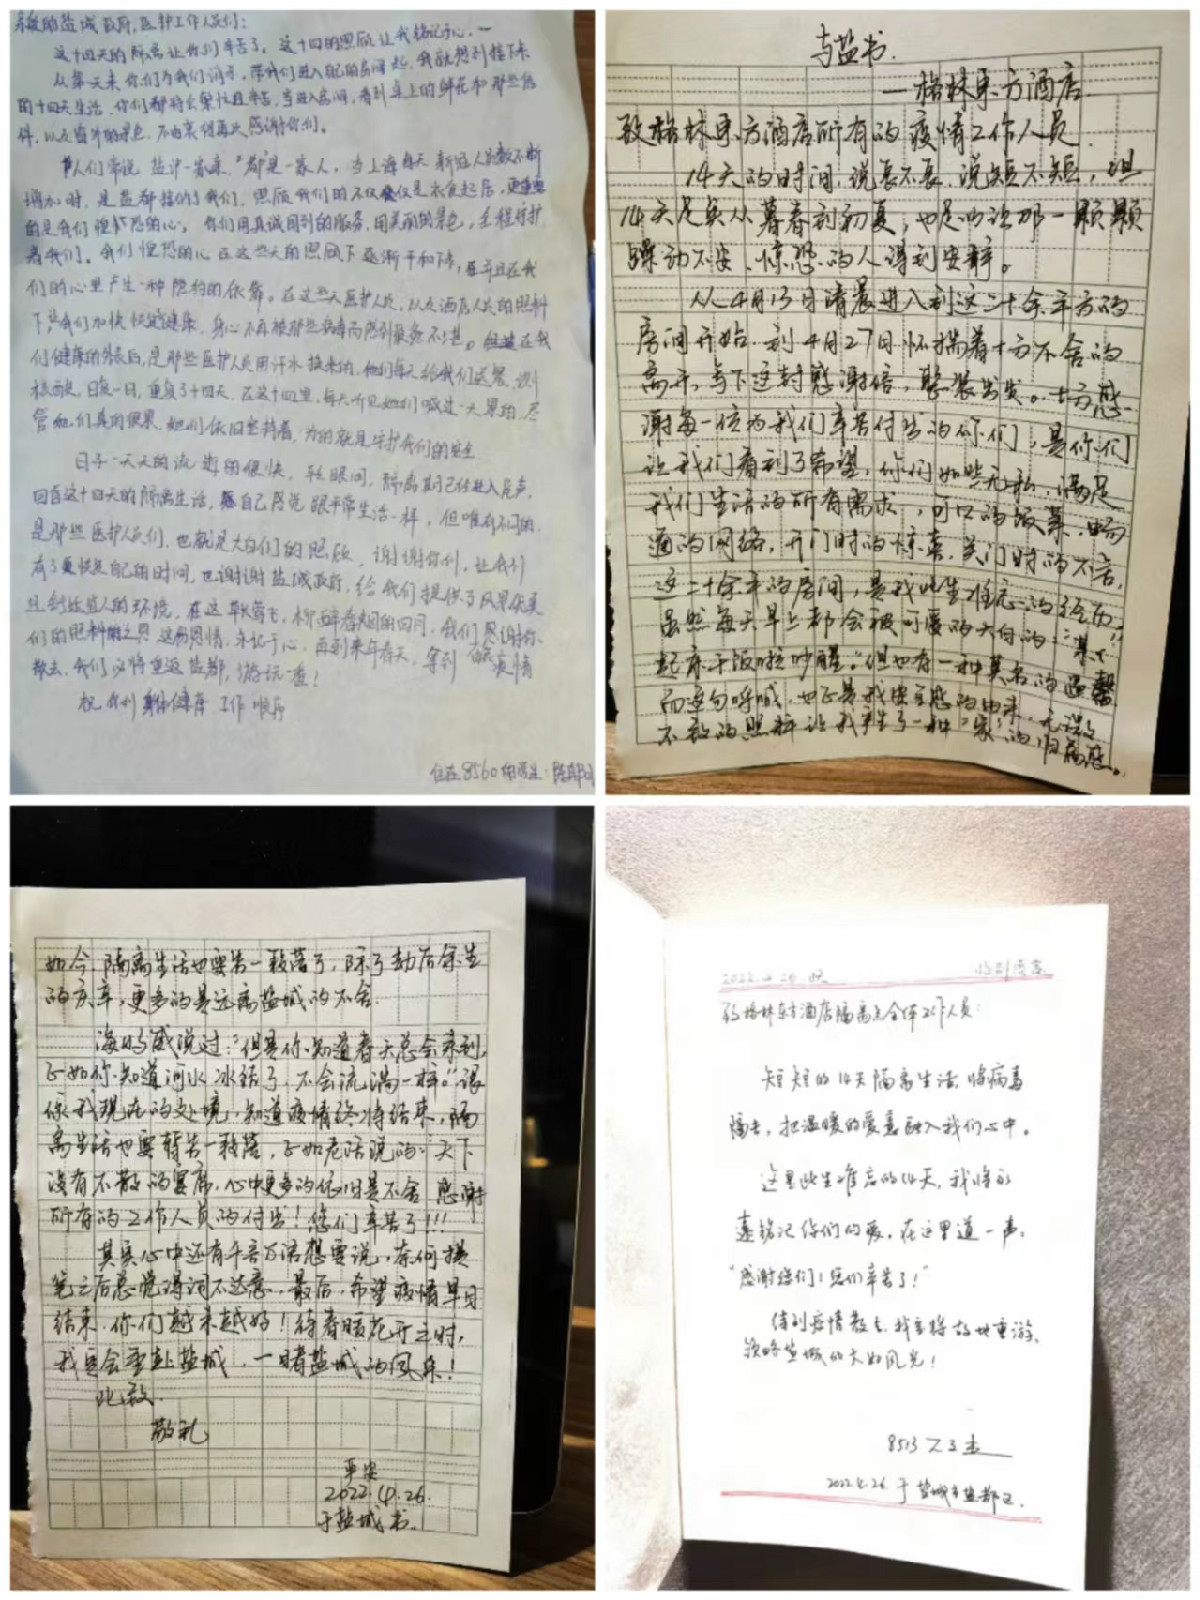 敬的盐城政府,医护工作人员们:
这十四天的隔离让你们辛苦了,这十四的照顾让我铭记于心,
从第一天来你们为我们消毒,带我们进入自己的房间起,我就想到接下来
的十四天生活,你们都将会繁忙且辛苦,当进入房间,看到桌上的鲜花和那些信
件,以及窗外的景色,不由衷得再次感谢你们。
人们常说"盐沪一家亲"都是一家人,当上海每天新冠人员数不断
增加时,是盐都接纳了我们,照顾我们的不仅仅是衣食起居,更重要
的是我们惶恐的心,你们用真诚周到的服务,用美丽的景色,全程守护
着我们。我们惶恐的心在这些天的照顾下逐渐平和下来,并且在我
们的心里产生一种隐约的依靠。在这些天医护人员,以及酒店人员的照料
下,我们加快恢复健康,身心不再被那些病毒而感到疲惫不堪。在我
们健康的外表后,是那些医护人员用汗水换来的,他们每天给我们送餐,测
核酸,日复一日,重复了十四天,在这十四里,每天听见她们喊
管她们真的很累,她们依旧坚持着,为的就是守护我们的安全
日子一天天的流逝的很快,转眼间,隔离期已经进入尾声,
回首这十四天的隔离生活,自己感觉跟平常生活一样,但唯有不同的,
是那些医护人员们,也就是大白们的照顾,谢谢你们,让我们
有了更快是自己的时间,也谢谢盐城政府,给我们提供了风景优美
且舒适宜人的环境,在这草长莺飞,柳醉春烟的四月,我们感谢你
们的照料,这份恩情,永记于心,再到来年春天,等到疫情
散去,我们必将重返盐都,游玩一番!
祝你们身体健康,工作顺序
住在8560的学生:
与盐书.
——格林东方酒店
致格林东方酒店所有的疫情工作人员
14天的时间,说长不长,说短不短,但
14天足矣从暮春到初夏,也足以让那一颗颗
躁动不安、惊恐的人得到安静。
从4月13日清晨进入到这二十余平方的
房间开始,到4月27日怀揣着十万不舍的
离开,写下这封感谢信,整装出发。十万感
谢每一位为我们辛苦付出的你们,是你们
让我们看到了希望,你们如此无私,满足
我们生活的所有需求,可口的饭菜,畅
通的网络,开门时的惊喜,关门时的不舍,
这二十余平的房间,是我此生难忘的经历!!
虽然每天早上都会被可爱的大白的:"
起床干饭啦吵醒",但也有一种莫名的温馨
而这句呼喊,也正是我安全感的由来,无微
不致的照料让我产生了一种"家"的归属感。
如今,隔离生活也要告一段落了,除了劫后余生
的庆幸,更多的是远离盐城的不舍.
海明威说过:"但是你知道春天总会来到,
正如你知道河水冰结了,不会流淌一样。"跟
你我现在的处境,知道疫情终将结束,隔
离生活也要暂告一段落,正如老话说的:天下
没有不散的宴席,心中更多的依旧是不舍,感谢
所有的工作人员的付出!您们辛苦了!!!
其实心中还有千言万语想要说,奈何提
笔之后总觉得词不达意,最后,希望疫情早日
结束,你们越来越好!待春暖花开之时,
我还会重赴盐城,一睹盐城的风采!
此致
敬礼
平安
2022.4.26.
于盐城书.
2022.4.26.
致格林东方酒店隔离点全体工作人员:
短短的14天隔离生活,将病毒
隔去,把温暖的爱意融入我们心中。
这里此生难忘的14天,我将永
远铭记你们的爱,在这里道一声:
"感谢您们!您们辛苦了!"
待到疫情散去,我会将故地重游,
领略盐城的大好风光!
8513
2022.4.26. 于盐城市盐都区.